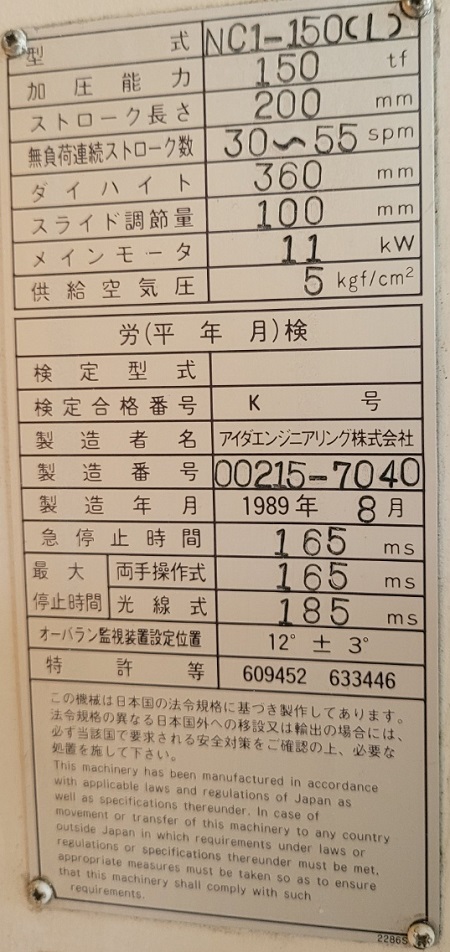 型式 NC1-150(L)
加圧能力 150 tf
ストローク長さ 200 mm
無負荷連続ストローク数 30〜55 spm
ダイハイト 360 mm
スライド調節量 100 mm
メインモータ 11 kW
供給空気圧 5 kgf/cm²
労(平 年 月)検
検定型式
検定合格番号 K 号
製造者名 アイダエンジニアリング株式会社
製造番号 00215-7040
製造年月 1989年 8月
急停止時間 165 ms
最大停止時間 両手操作式 165 ms
光線式 185 ms
オーバラン監視装置設定位置 12° ± 3°
特許等 609452 633446
この機械は日本国の法令規格に基づき製作してあります。
法令規格の異なる日本国外への移設又は輸出の場合には、
必ず当該国で要求される安全対策をご確認の上、必要な
処置を施して下さい。
This machinery has been manufactured in accordance
with applicable laws and regulations of Japan as
well as specifications thereunder. In case of
movement or transfer of this machinery to any country
outside Japan in which requirements under laws or
regulations or specifications thereunder must be met,
appropriate measures must be taken so as to ensure
that this machinery shall comply with such
requirements.
2286S